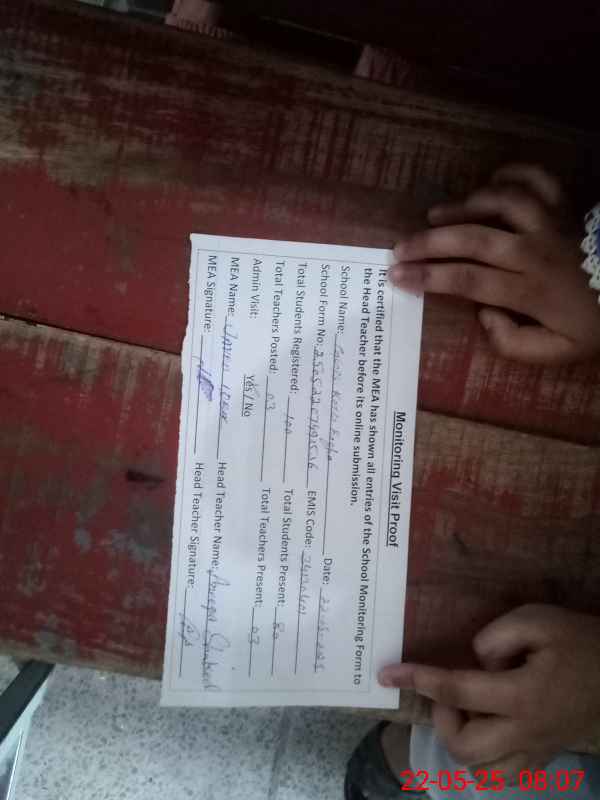 Monitoring Visit Proof
It is certified that the MEA has shown all entries of the School Monitoring Form to
the Head Teacher before its online submission.
School Name: Date: 22-05-2025
School Form No: EMIS Code:
Total Students Registered: 100 Total Students Present: 80
Total Teachers Posted: 03 Total Teachers Present: 03
Admin Visit: Yes / No
MEA Name: Head Teacher Name:
MEA Signature: Head Teacher Signature:
22-05-25 08:07